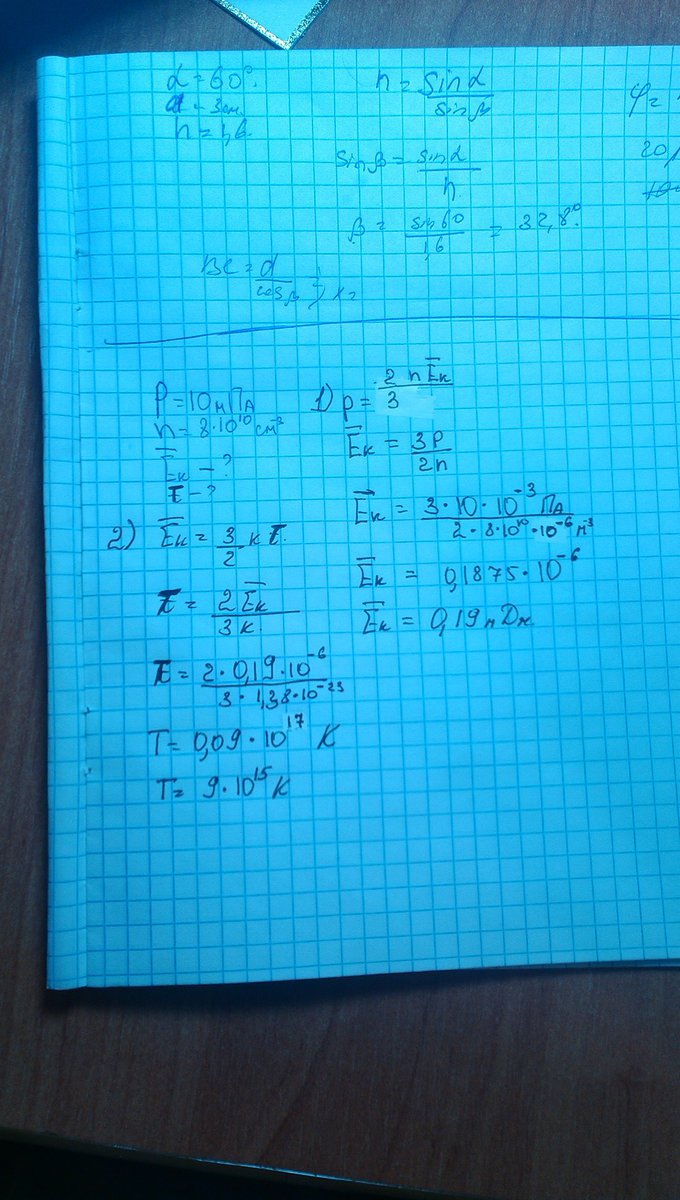 α = 60°.
d = 3см.
n = 1,6.
n = sinα / sinβ
φ =
sinβ = sinα / n
β = sin 60 / 1,6 = 32,8°.
BC = d / cosβ ; x =
P = 10 мПа
n = 8·10¹⁰ см⁻³
E̅к - ?
T - ?
1) p = 2 n E̅к / 3
E̅к = 3P / 2n
E̅к = 3·10·10⁻³ Па / 2·8·10¹⁰·10⁻⁶ м⁻³
E̅к = 0,1875·10⁻⁶
E̅к = 0,19 пДж
2) E̅к = 3/2 k T.
T = 2E̅к / 3k.
T = 2·0,19·10⁻⁶ / 3·1,38·10⁻²³
T = 0,09·10¹⁷ K
T = 9·10¹⁵ K